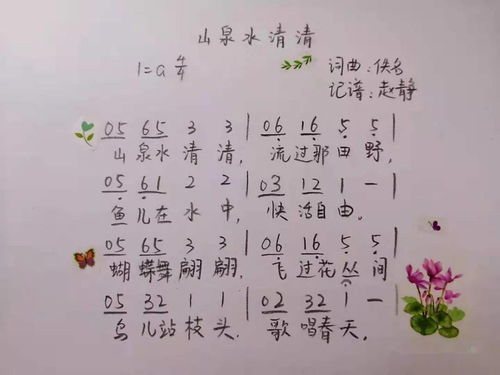 山泉水清清
1=G 4/4
词曲:佚名
记谱:赵静
05 65 3 3 | 06 16 5 5 |
山泉水清清, 流过那田野,
05 61 2 2 | 03 12 1 — |
鱼儿在水中, 快活自由.
05 65 3 3 | 06 16 5 5 |
蝴蝶舞翩翩, 飞过花丛间
05 32 1 1 | 02 32 1 — |
鸟儿站枝头. 歌唱春天.